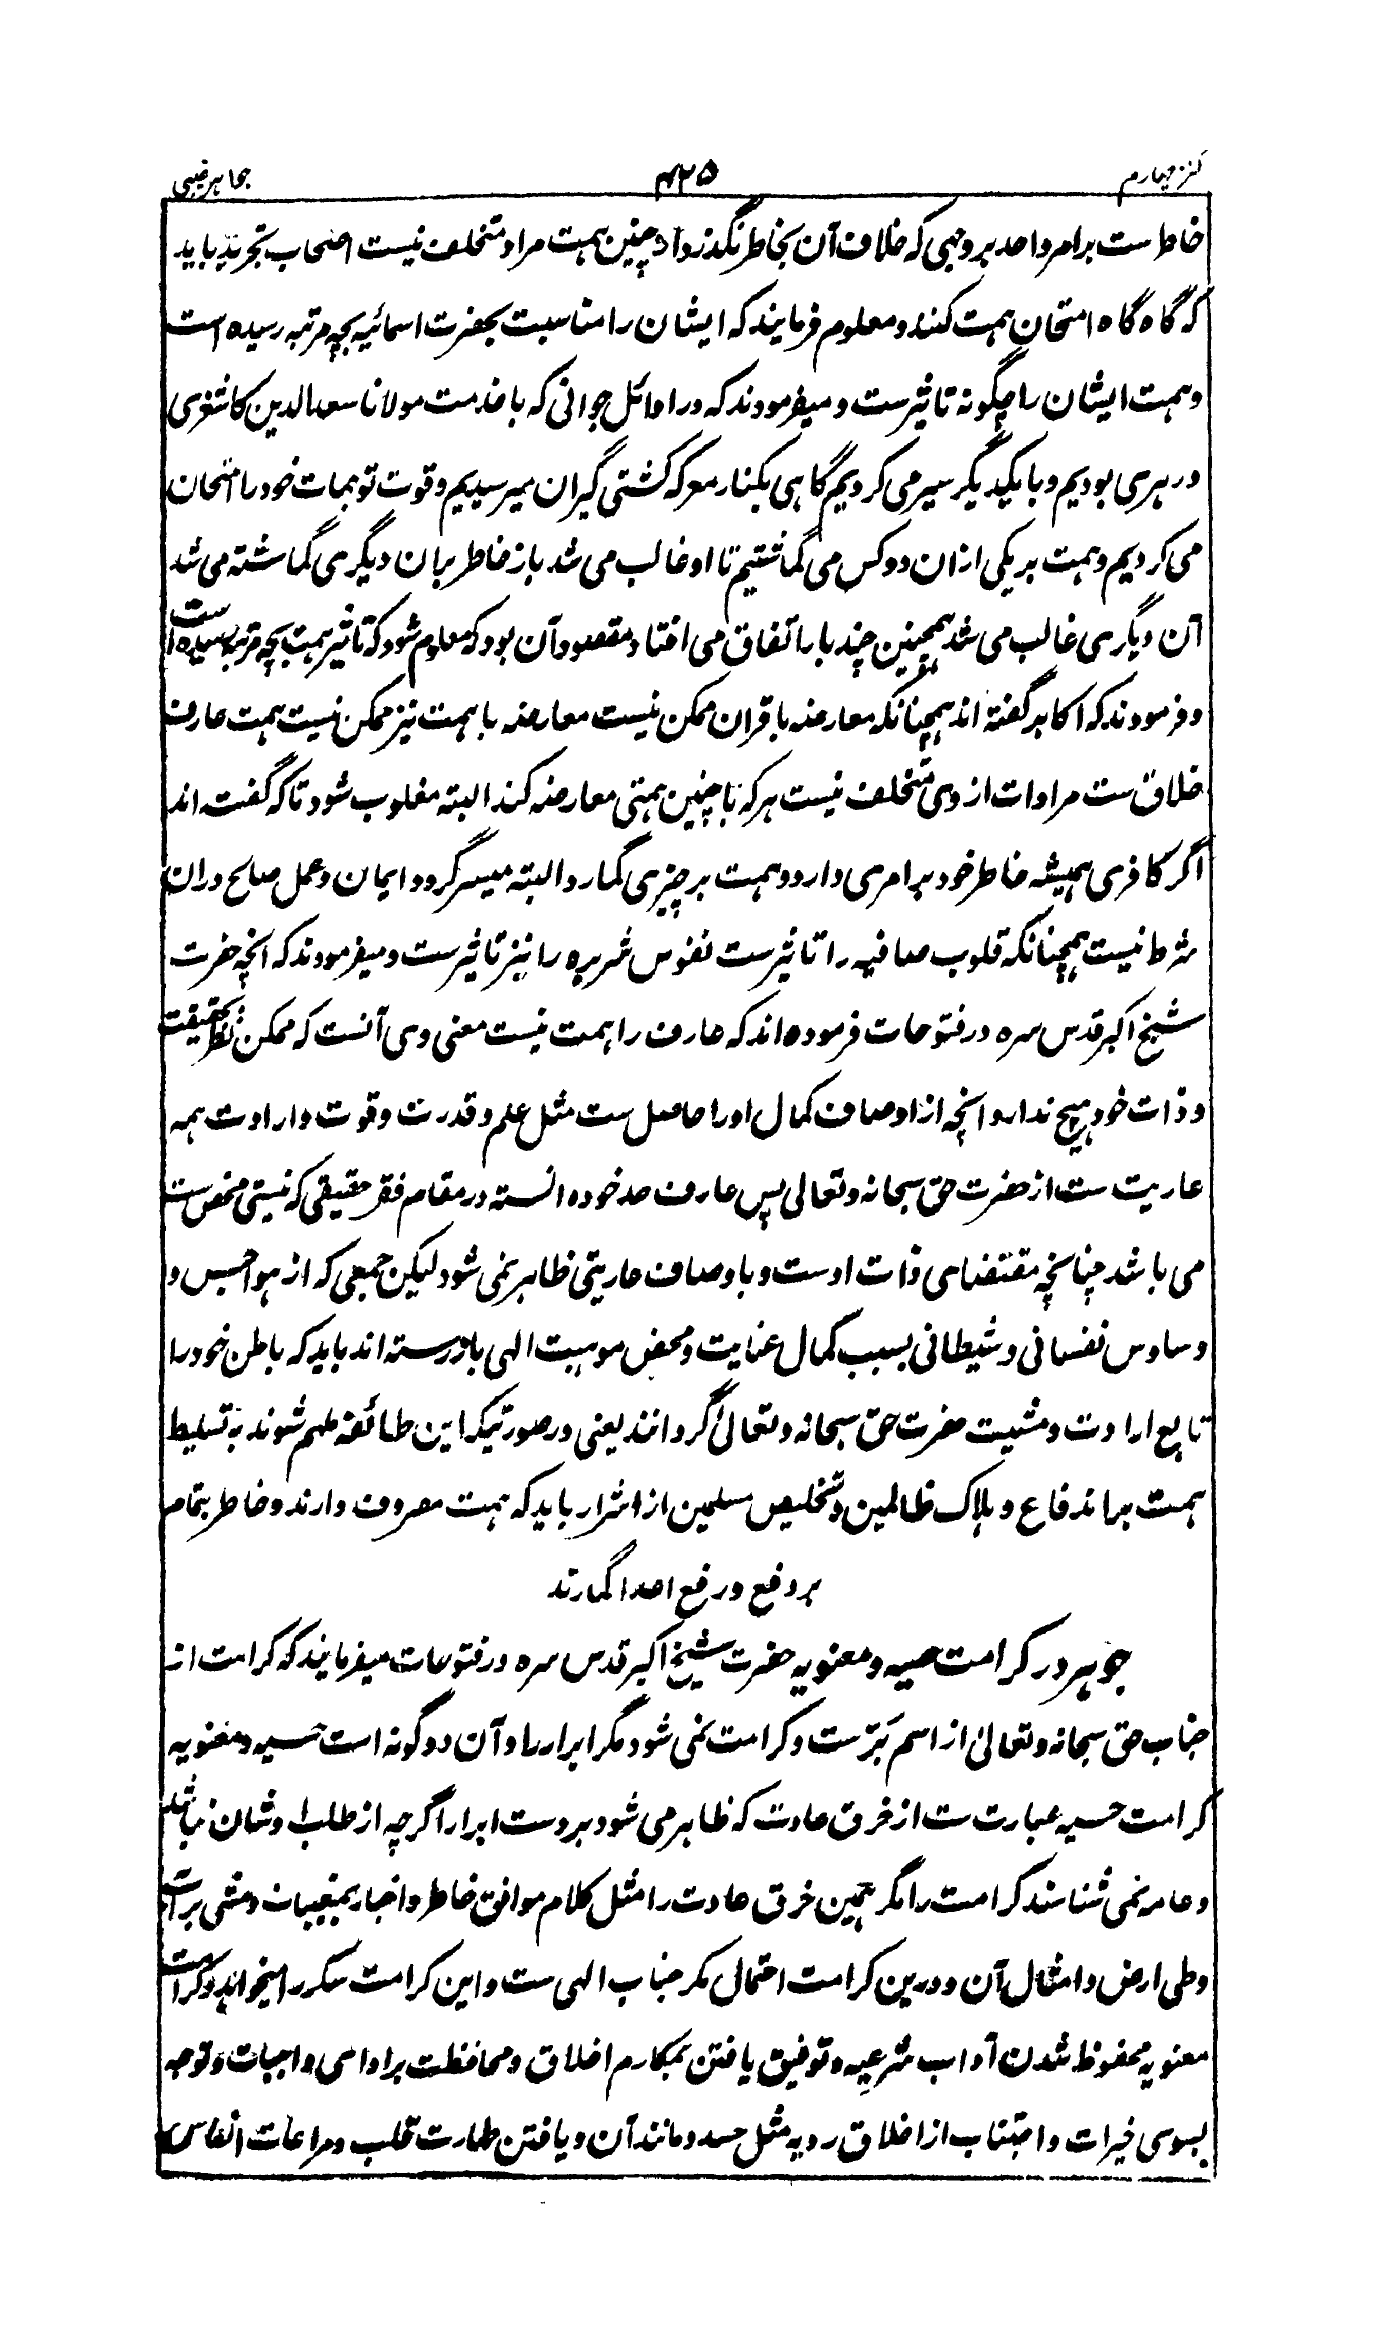 کنز چهارم
۴۲۵
جواهر غیبی
خاطرست برامر واحد بر وجهی که خلاف آن بخاطر نگذرد و از چنین همت مراد متخلف نیست اصحاب تجرید باید
که گاه گاه امتحان همت کنند و معلوم فرمایند که ایشان را مناسبت بحضرت اسمائیه بچه مرتبه رسیده است
و همت ایشان را چگونه تاثیرست و میفرمودند که در اوائل جوانی که با خدمت مولانا سعدالدین کاشغری
در هری بودیم و بایکدیگر سیر می کردیم گاهی بکنار معرکه کشتی گیران میرسیدیم و قوت توجهات خود را امتحان
می کردیم و همت بر یکی ازان دو کس می گماشتیم تا او غالب می شد باز خاطر بران دیگری گماشته می شد
آن دیگری غالب می شد همچنین چند بار اتفاق می افتاد مقصود آن بود که معلوم شود که تاثیر همت بچه مرتبه رسیده است
و فرمودند که اکابر گفته اند همچنانکه معارضه با قران ممکن نیست معارضه با همت نیز ممکن نیست همت عارف
خلاق ست مرادات از وی متخلف نیست هرکه با چنین همتی معارضه کند البته مغلوب شود تا که گفته اند
اگر کافری همیشه خاطر خود برامری دارد و همت بر چیزی گمارد البته میسر گردد و ایمان و عمل صالح دران
شرط نیست همچنانکه قلوب صافیه را تاثیرست نفوس شریره را نیز تاثیرست و میفرمودند که انچه حضرت
شیخ اکبر قدس سره در فتوحات فرموده اند که عارف را همت نیست معنی وی آنست که ممکن نظر بحقیقت
و ذات خود هیچ ندارد و انچه از اوصاف کمال او را حاصل ست مثل علم و قدرت و قوت و ارادت همه
عاریت ست از حضرت حق سبحانه و تعالی پس عارف حد خود دانسته در مقام فقر حقیقی که نیستی محض ست
می باشد چنانچه مقتضای ذات اوست و باوصاف عاریتی ظاهر نمی شود لیکن جمعی که از هواجس و
وساوس نفسانی و شیطانی بسبب کمال عنایت و محض موهبت الهی باز رسته اند باید که باطن خود را
تابع ارادت و مشیت حضرت حق سبحانه و تعالیٰ گردانند یعنی در صورتیکه این طائفه ملهم شوند به تسلیط
همت بر اندفاع و هلاک ظالمین و تخلیص مسلمین از اشرار باید که همت مصروف دارند و خاطر بتمام
بر دفع و رفع اعدا گمارند
جوهر در کرامت حسیه و معنویه حضرت شیخ اکبر قدس سره در فتوحات میفرمایند که کرامت از
جناب حق سبحانه و تعالیٰ از اسم بَرّست و کرامت نمی شود مگر ابرار را و آن دو گونه است حسیه و معنویه
کرامت حسیه عبارت ست از خرق عادت که ظاهر می شود بر دست ابرار اگرچه از طلب اوشان نباشد
و عامه نمی شناسند کرامت را مگر همین خرق عادت را مثل کلام موافق خاطر و اخبار بمغیبات و مشی بر آب
و طی ارض و امثال آن و درین کرامت احتمال مکر جناب الهی ست و این کرامت سکر را میخواند و کرامت
معنویه محفوظ شدن آداب شرعیه و توفیق یافتن بمکارم اخلاق و محافظت بر ادای واجبات و توجه
بسوی خیرات و اجتناب از اخلاق ردیه مثل حسد و مانند آن و یافتن طهارت قلب و مراعات انفاس